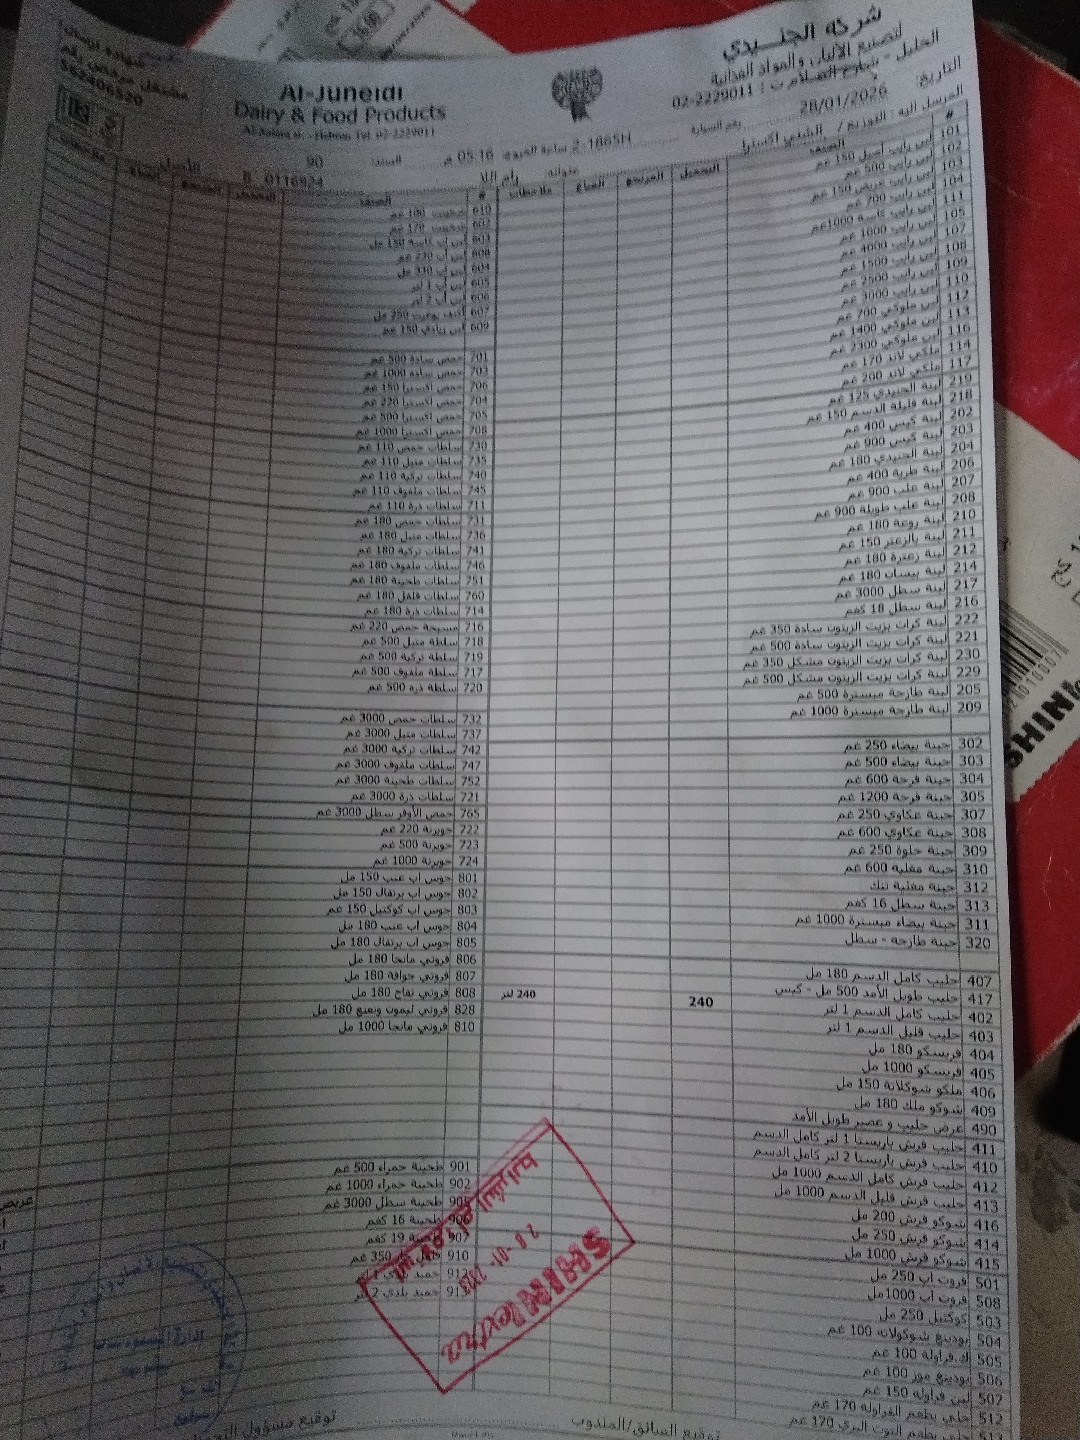 شركة الجنيدي
لتصنيع الألبان والمواد الغذائية
الخليل - شارع السلام ت : 02-2229011
Al-Juneidi
Dairy & Food Products
Al-Salam st. - Hebron Tel. 02-2229011
مشتغل مرخص رقم
562406520
التاريخ: 28/01/2026
رقم السيارة 2-1865H ساعة الخروج 05:16 م السند: 90
المرسل اليه : التوزيع / الشني اكسترا
عنوانه رام الله
B 0116924
# الصنف التحميل المرتجع الملاحظات
101 لبن رايب أصيل 150 غم
102 لبن رايب 500 غم
103 لبن رايب عريض 150 غم
104 لبن رايب 700 غم
111 لبن رايب كاسة 1000غم
105 لبن رايب 1000 غم
107 لبن رايب 4000 غم
108 لبن رايب 1500 غم
109 لبن رايب 2500 غم
110 لبن رايب 3000 غم
112 لبن ملوكي 700 غم
113 لبن ملوكي 1400 غم
116 لبن ملوكي 2300 غم
114 ملكي لاند 170 غم
117 ملكي لاند 200 غم
219 لبنة الجنيدي 125 غم
218 لبنة قليلة الدسم 150 غم
202 لبنة كيس 400 غم
203 لبنة كيس 900 غم
204 لبنة الجنيدي 180 غم
206 لبنة طرية 400 غم
207 لبنة علب 900 غم
208 لبنة علب طويلة 900 غم
210 لبنة روعة 180 غم
211 لبنة بالزعتر 150 غم
212 لبنة زعترة 180 غم
214 لبنة بيسان 180 غم
217 لبنة سطل 3000 غم
216 لبنة سطل 18 كغم
222 لبنة كرات بزيت الزيتون سادة 350 غم
221 لبنة كرات بزيت الزيتون سادة 500 غم
230 لبنة كرات بزيت الزيتون مشكل 350 غم
229 لبنة كرات بزيت الزيتون مشكل 500 غم
205 لبنة طازجة مبسترة 500 غم
209 لبنة طازجة مبسترة 1000 غم
302 جبنة بيضاء 250 غم
303 جبنة بيضاء 500 غم
304 جبنة فرحة 600 غم
305 جبنة فرحة 1200 غم
307 جبنة عكاوي 250 غم
308 جبنة عكاوي 600 غم
309 جبنة حلوة 250 غم
310 جبنة مغلية 600 غم
312 جبنة مغلية تنك
313 جبنة سطل 16 كغم
311 جبنة بيضاء مبسترة 1000 غم
320 جبنة طازجة - سطل
407 حليب كامل الدسم 180 مل
417 حليب طويل الأمد 500 مل - كيس
402 حليب كامل الدسم 1 لتر 240 240 لتر
403 حليب قليل الدسم 1 لتر
404 فريسكو 180 مل
405 فريسكو 1000 مل
406 ملكو شوكلاته 150 مل
409 شوكو ملك 180 مل
490 عرض حليب و عصير طويل الأمد
411 حليب فرش باريستا 1 لتر كامل الدسم
410 حليب فرش باريستا 2 لتر كامل الدسم
412 حليب فرش كامل الدسم 1000 مل
413 حليب فرش قليل الدسم 1000 مل
416 شوكو فرش 200 مل
414 شوكو فرش 250 مل
415 شوكو فرش 1000 مل
501 فروت اب 250 مل
508 فروت اب 1000مل
503 كوكتيل 250 مل
504 بودينغ شوكولاته 100 غم
505 ك.فراولة 100 غم
506 بودينغ موز 100 غم
507 لبن فراولة 150 غم
512 جلي بطعم الفراولة 170 غم
513 جلي بطعم التوت البري 170 غم
# الصنف
610 100 غم
602 170 غم
603 لبن اب كاسة 150 مل
608 لبن اب 230 غم
604 لبن اب 330 مل
605 لبن اب 1 لتر
606 لبن اب 2 لتر
607 250 مل
609 لبن زبادي 150 غم
701 حمص سادة 500 غم
703 حمص سادة 1000 غم
706 حمص اكسترا 150 غم
704 حمص اكسترا 220 غم
705 حمص اكسترا 500 غم
708 حمص اكسترا 1000 غم
730 سلطات حمص 110 غم
735 سلطات متبل 110 غم
740 سلطات تركية 110 غم
745 سلطات ملفوف 110 غم
711 سلطات ذرة 110 غم
731 سلطات حمص 180 غم
736 سلطات متبل 180 غم
741 سلطات تركية 180 غم
746 سلطات ملفوف 180 غم
751 سلطات طحينة 180 غم
760 سلطات فلفل 180 غم
714 سلطات ذرة 180 غم
716 مسبحة حمص 220 غم
718 سلطة متبل 500 غم
719 سلطة تركية 500 غم
717 سلطة ملفوف 500 غم
720 سلطة ذرة 500 غم
732 سلطات حمص 3000 غم
737 سلطات متبل 3000 غم
742 سلطات تركية 3000 غم
747 سلطات ملفوف 3000 غم
752 سلطات طحينة 3000 غم
721 سلطات ذرة 3000 غم
765 حمص الأوفر سطل 3000 غم
722 جويرية 220 غم
723 جويرية 500 غم
724 جويرية 1000 غم
801 جوس اب عنب 150 مل
802 جوس اب برتقال 150 مل
803 جوس اب كوكتيل 150 غم
804 جوس اب عنب 180 مل
805 جوس اب برتقال 180 مل
806 فروتي مانجا 180 مل
807 فروتي جوافة 180 مل
808 فروتي تفاح 180 مل
828 فروتي ليمون ونعنع 180 مل
810 فروتي مانجا 1000 مل
901 طحينة حمراء 500 غم
902 طحينة حمراء 1000 غم
905 طحينة سطل 3000 غم
906 طحينة 16 كغم
907 طحينة 19 كغم
910 350 غم
SHINIextra
توقيع السائق/المندوب
توقيع مسؤول
SHINI